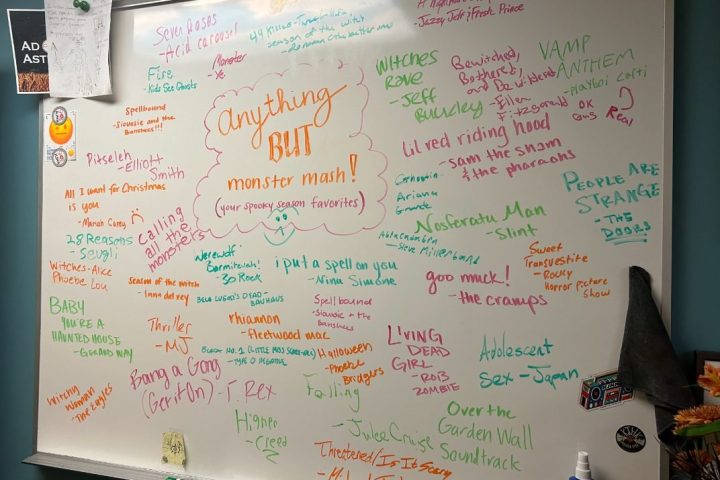 AD
AST
Seven Doses
- Acid carousel
49 Killas -
season of the witch
- Jazzy Jeff / Fresh Prince
Fire
- Kids See Ghosts
Monster
- Ye
Spellbound
- Siouxsie and the
Banshees!!!
anything
BUT
monster mash!
(your spooky season favorites)
WITCHES
RAVE
- JEFF
BUCKLEY
Bewitched,
Bothered,
and Bewildered
- Ellen
Fitzgerald
VAMP
ANTHEM
- Playboi Carti
OK
Real
Lil red riding hood
- Sam the Sham
& the pharaohs
Pitseleh
- Elliott
Smith
All I want for Christmas
is you
- Mariah Carey
calling
all the
monsters
Ariana
Grande
PEOPLE ARE
STRANGE
- THE
DOORS
Nosferatu Man
- Slint
28 Reasons
- Seulgi
Abracadabra
- Steve Miller band
Werewolf
Barmitzvah!
- 30 Rock
i put a spell on you
- Nina Simone
goo muck!
- the cramps
Sweet
Transvestite
- Rocky
Horror picture
show
Witches - Alice
Phoebe Lou
season of the witch
- lana del rey
BELA LUGOSI'S DEAD -
BAUHAUS
Spell bound
- Siouxsie + the
Banshees
BABY
YOU'RE A
HAUNTED HOUSE
- GERARD WAY
Thriller
- MJ
rhiannon
- fleetwood mac
BLACK NO. 1 (LITTLE MISS SCARE-ALL)
- TYPE O NEGATIVE
Halloween
- Phoebe
Bridgers
LIVING
DEAD
GIRL
- ROB
ZOMBIE
Adolescent
Sex - Japan
Witchy
Woman
- The Eagles
Bang a Gong
(Get it On) - T. Rex
Falling
- Julee Cruise
Higher
- Creed
Over the
Garden Wall
Soundtrack
Threatened / Is It Scary